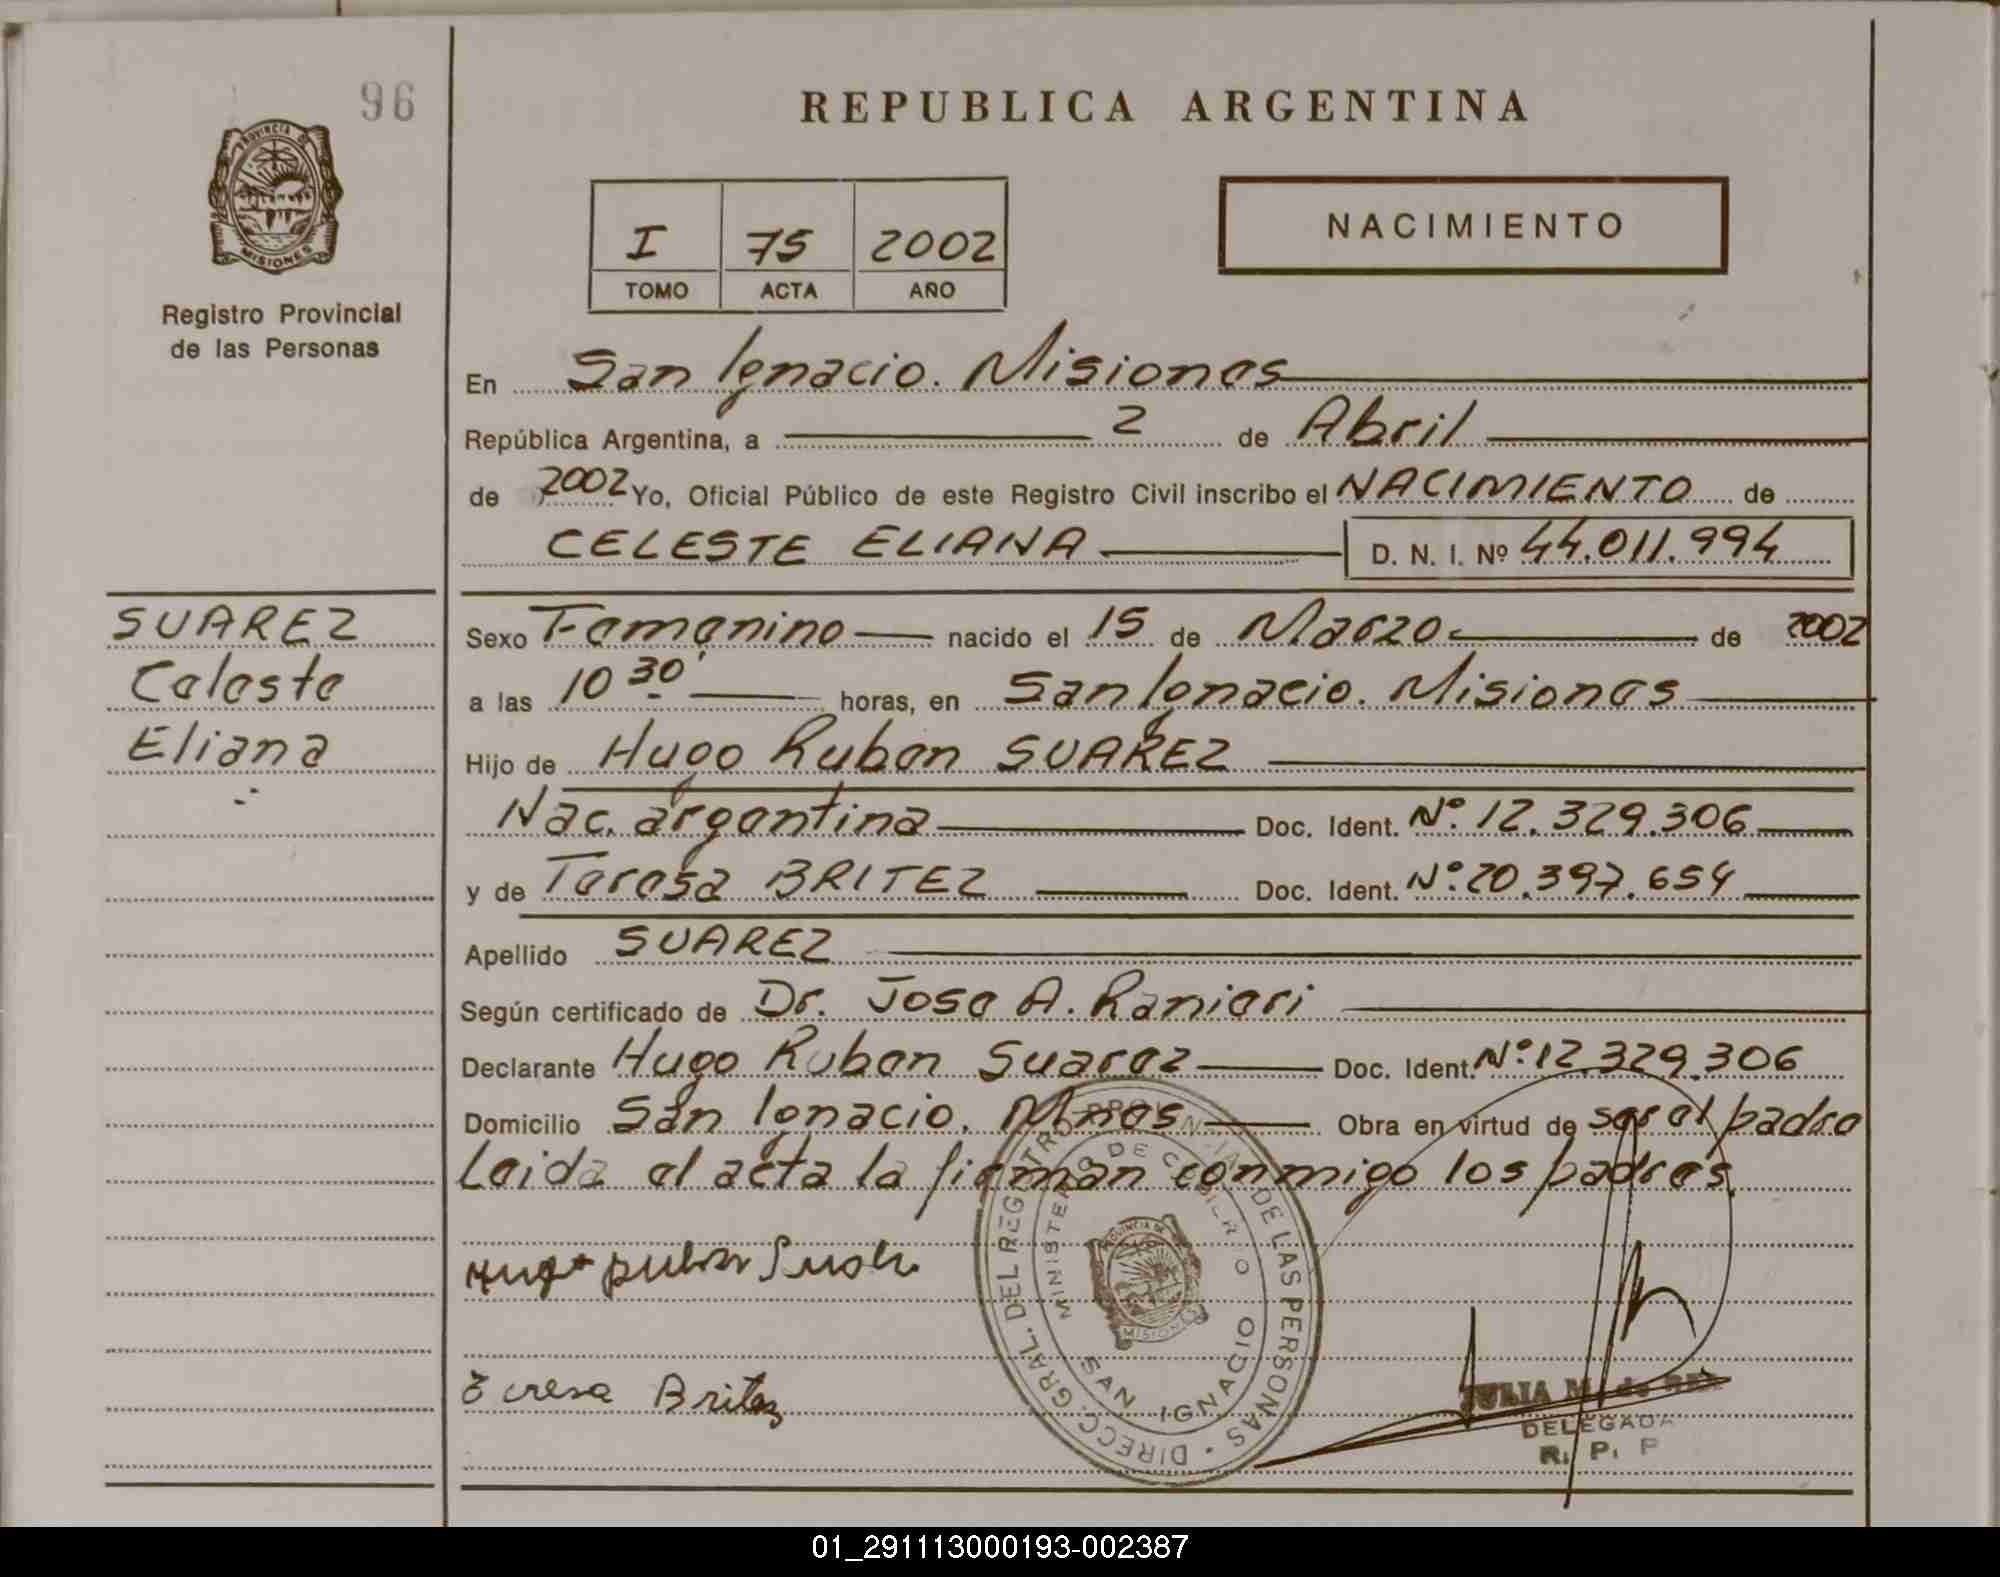 96
PROVINCIA DE
MISIONES
Registro Provincial
de las Personas
REPUBLICA ARGENTINA
I 75 2002
TOMO ACTA AÑO
NACIMIENTO
En San Ignacio. Misiones
República Argentina, a 2 de Abril
de 2002 Yo, Oficial Público de este Registro Civil inscribo el NACIMIENTO de
CELESTE ELIANA D. N. I. Nº 44.011.994
SUAREZ
Celeste
Eliana
Sexo Femenino nacido el 15 de Marzo de 2002
a las 10 30' horas, en San Ignacio. Misiones
Hijo de Hugo Ruben SUAREZ
Nac. argentina Doc. Ident. Nº 12.329.306
y de Teresa BRITEZ Doc. Ident. Nº 20.397.654
Apellido SUAREZ
Según certificado de Dr. Jose A. Ranieri
Declarante Hugo Ruben Suarez Doc. Ident. Nº 12.329.306
Domicilio San Ignacio. Mnes Obra en virtud de ser el padre
Leida el acta la firman conmigo los padres.
Teresa Britez
DIRECC. GRAL. DEL REGISTRO PROVINCIAL DE LAS PERSONAS
MINISTERIO DE GOBIERNO
PROVINCIA DE
MISIONES
SAN IGNACIO
JULIA M. de
DELEGADA
R. P. P
01_291113000193-002387